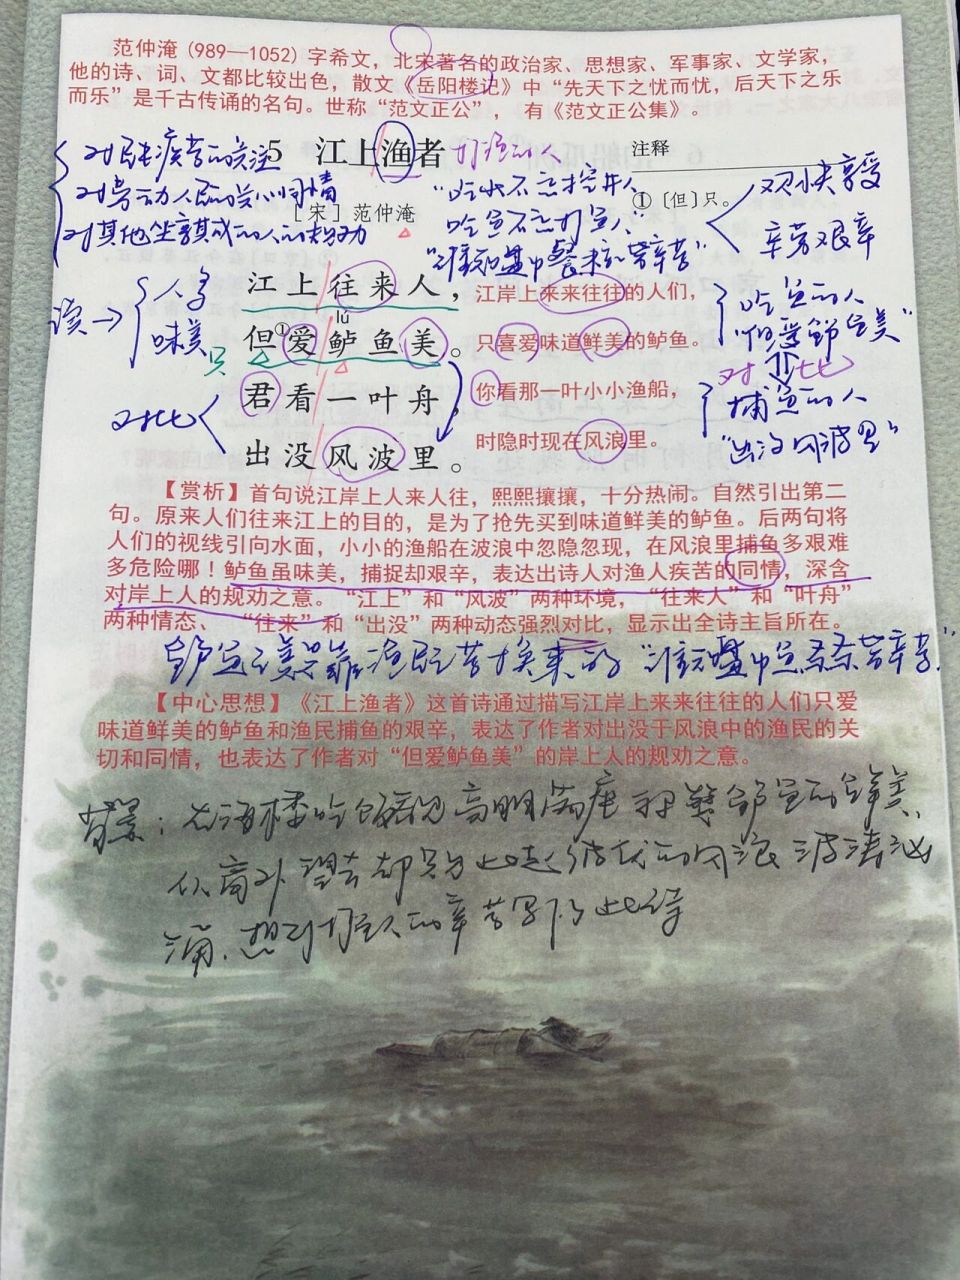 范仲淹（989—1052）字希文，北宋著名的政治家、思想家、军事家、文学家，
他的诗、词、文都比较出色，散文《岳阳楼记》中“先天下之忧而忧，后天下之乐
而乐”是千古传诵的名句。世称“范文正公”，有《范文正公集》。
对民生疾苦的关注
对劳动人民的关心同情
对其他坐享其成的人的规劝
5 江上渔者
打渔的人
［宋］范仲淹
“吃水不忘挖井人
吃鱼不忘打鱼人”
“谁知盘中餐 粒粒皆辛苦”
注释
①〔但〕只。
享受
辛劳艰辛
江上往来人，
lú
但①爱鲈鱼美。
君看一叶舟，
出没风波里。
人多
味美
只
对比
江岸上来来往往的人们，
只喜爱味道鲜美的鲈鱼。
你看那一叶小小渔船，
时隐时现在风浪里。
吃鱼的人
“但爱鲈鱼美”
对比
捕鱼的人
“出没风波里”
【赏析】首句说江岸上人来人往，熙熙攘攘，十分热闹。自然引出第二
句。原来人们往来江上的目的，是为了抢先买到味道鲜美的鲈鱼。后两句将
人们的视线引向水面，小小的渔船在波浪中忽隐忽现，在风浪里捕鱼多艰难
多危险哪！鲈鱼虽味美，捕捉却艰辛，表达出诗人对渔人疾苦的同情，深含
对岸上人的规劝之意。“江上”和“风波”两种环境，“往来人”和“叶舟”
两种情态、“往来”和“出没”两种动态强烈对比，显示出全诗主旨所在。
鲈鱼之美是靠渔民辛苦换来的
【中心思想】《江上渔者》这首诗通过描写江岸上来来往往的人们只爱
味道鲜美的鲈鱼和渔民捕鱼的艰辛，表达了作者对出没于风浪中的渔民的关
切和同情，也表达了作者对“但爱鲈鱼美”的岸上人的规劝之意。
背景：在酒楼吃饭看见高朋满座 鲈鱼的鲜美，
从窗外望去却 的风浪 波涛汹
涌，想到打鱼人的辛苦写下此诗